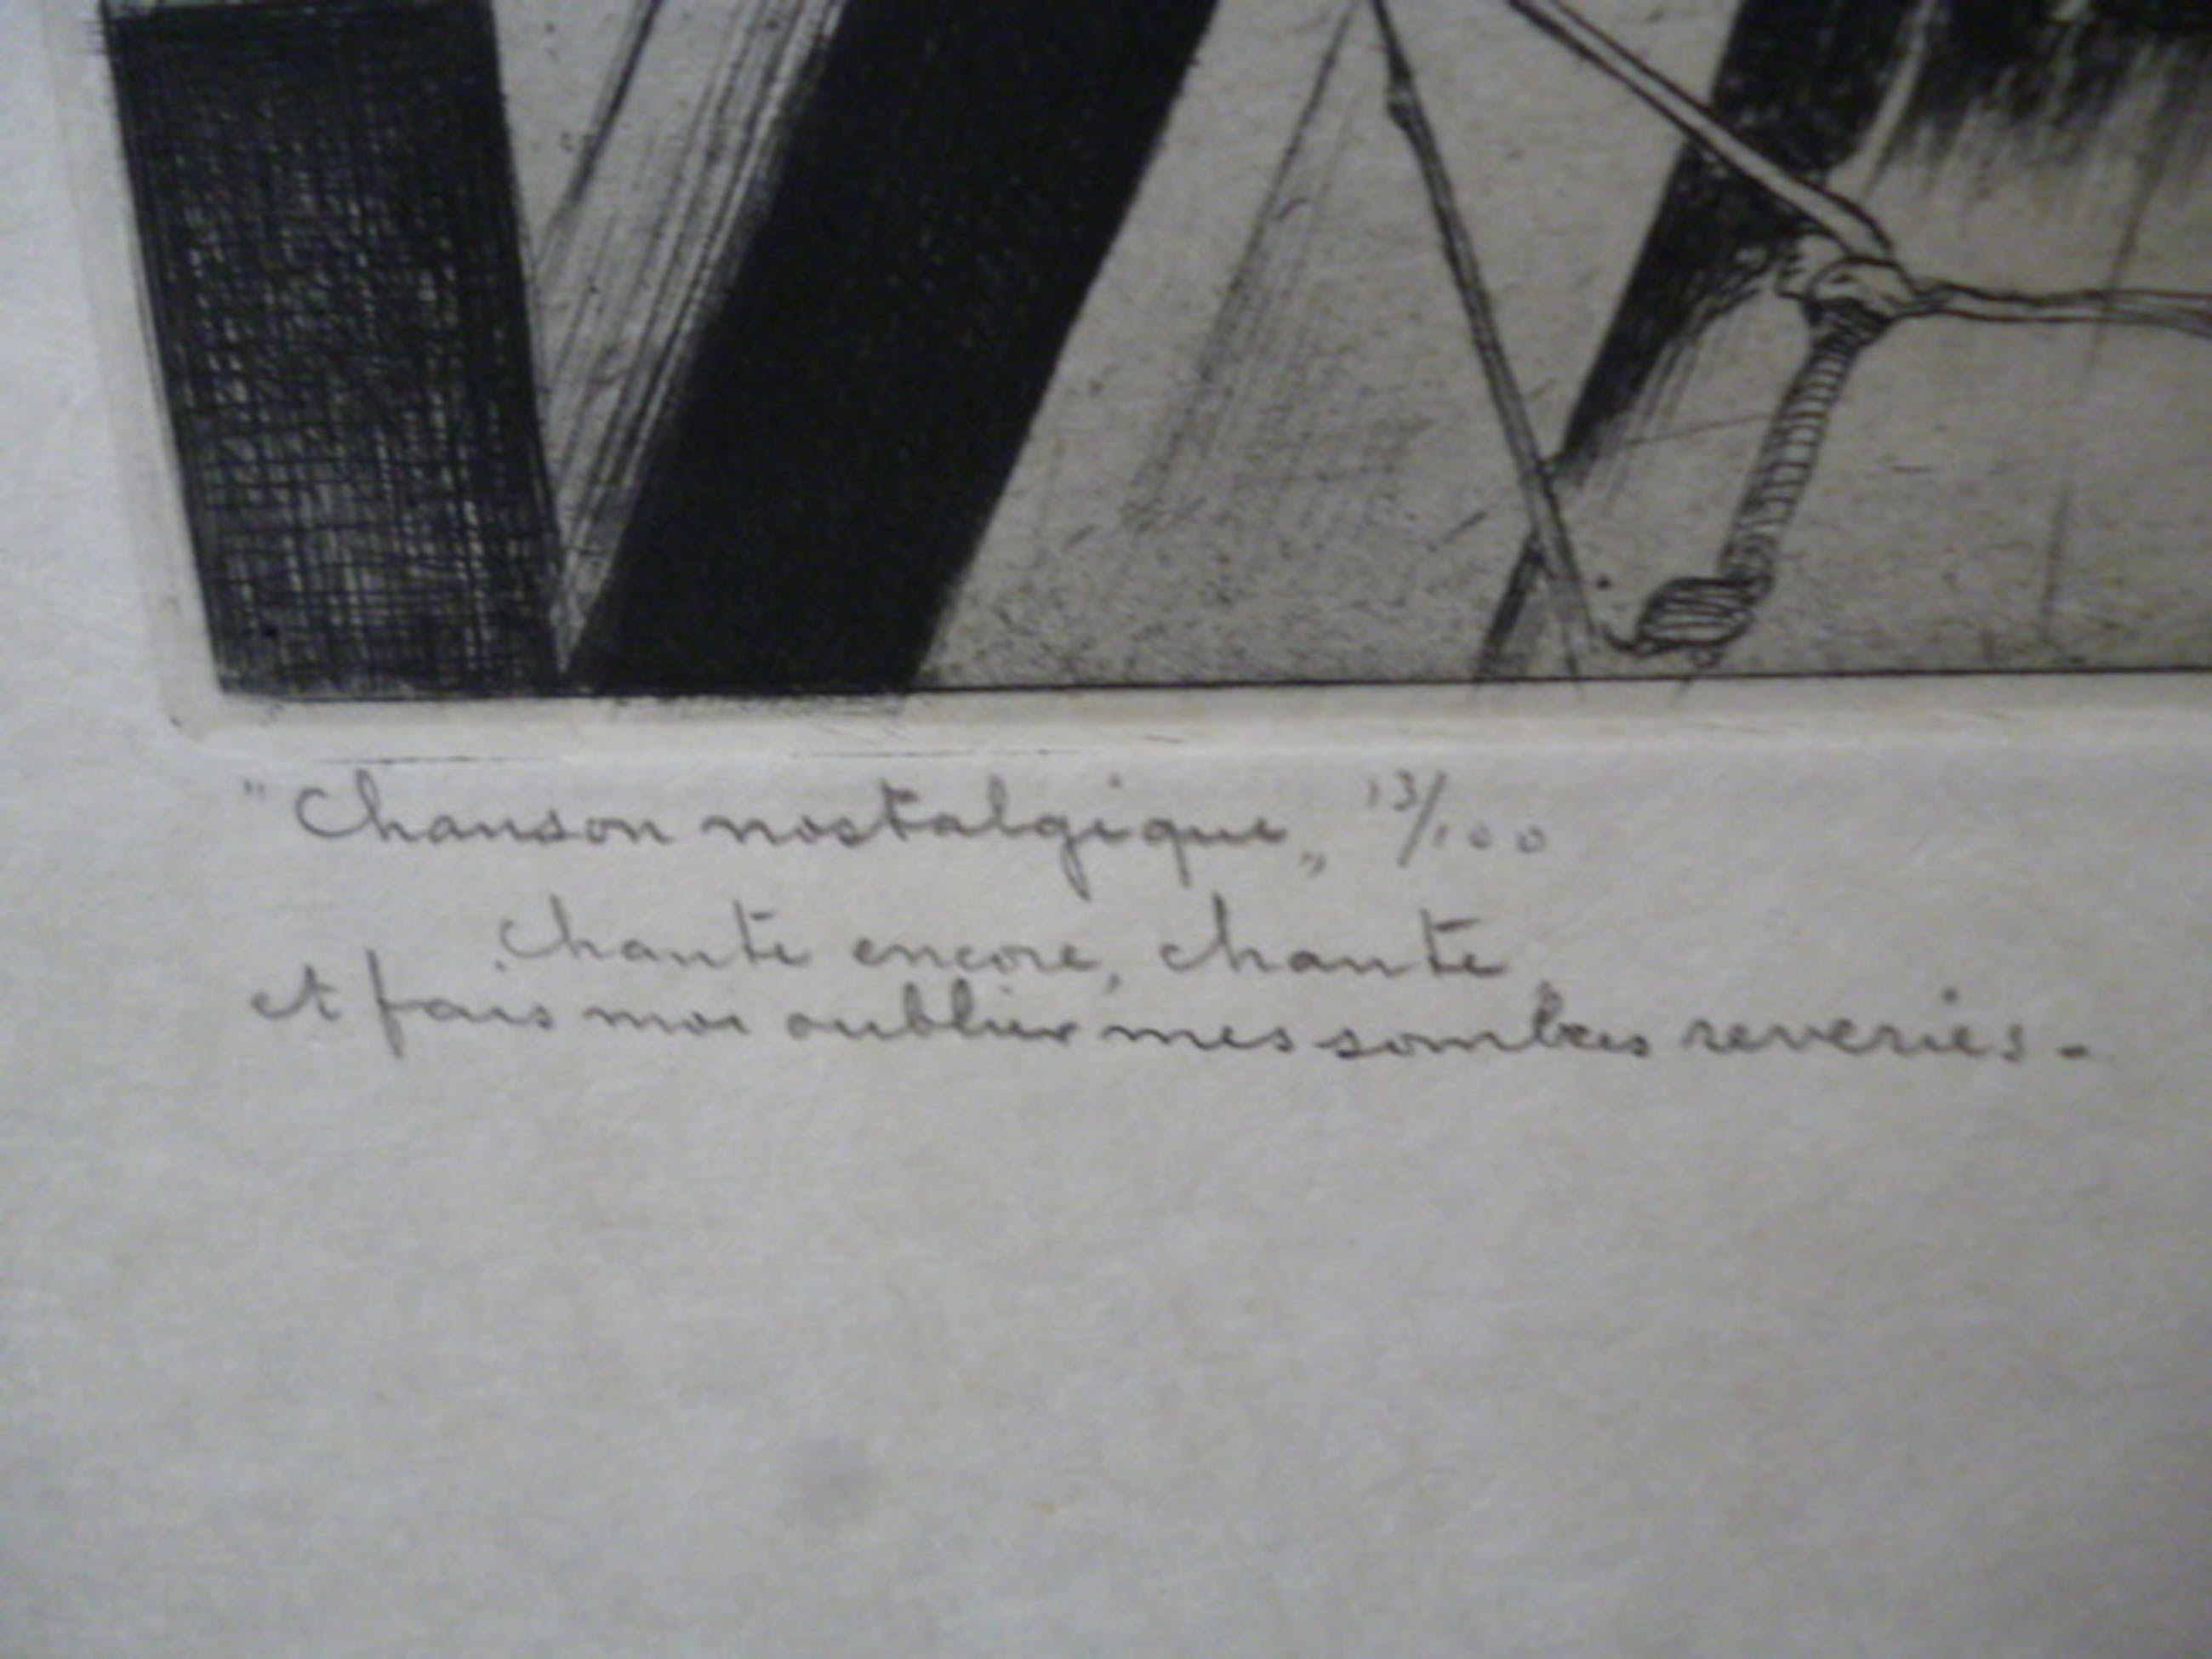 "Chanson nostalgique„ 13/100
Chante encore, chante,
et fais moi oublier mes sombres reveries-